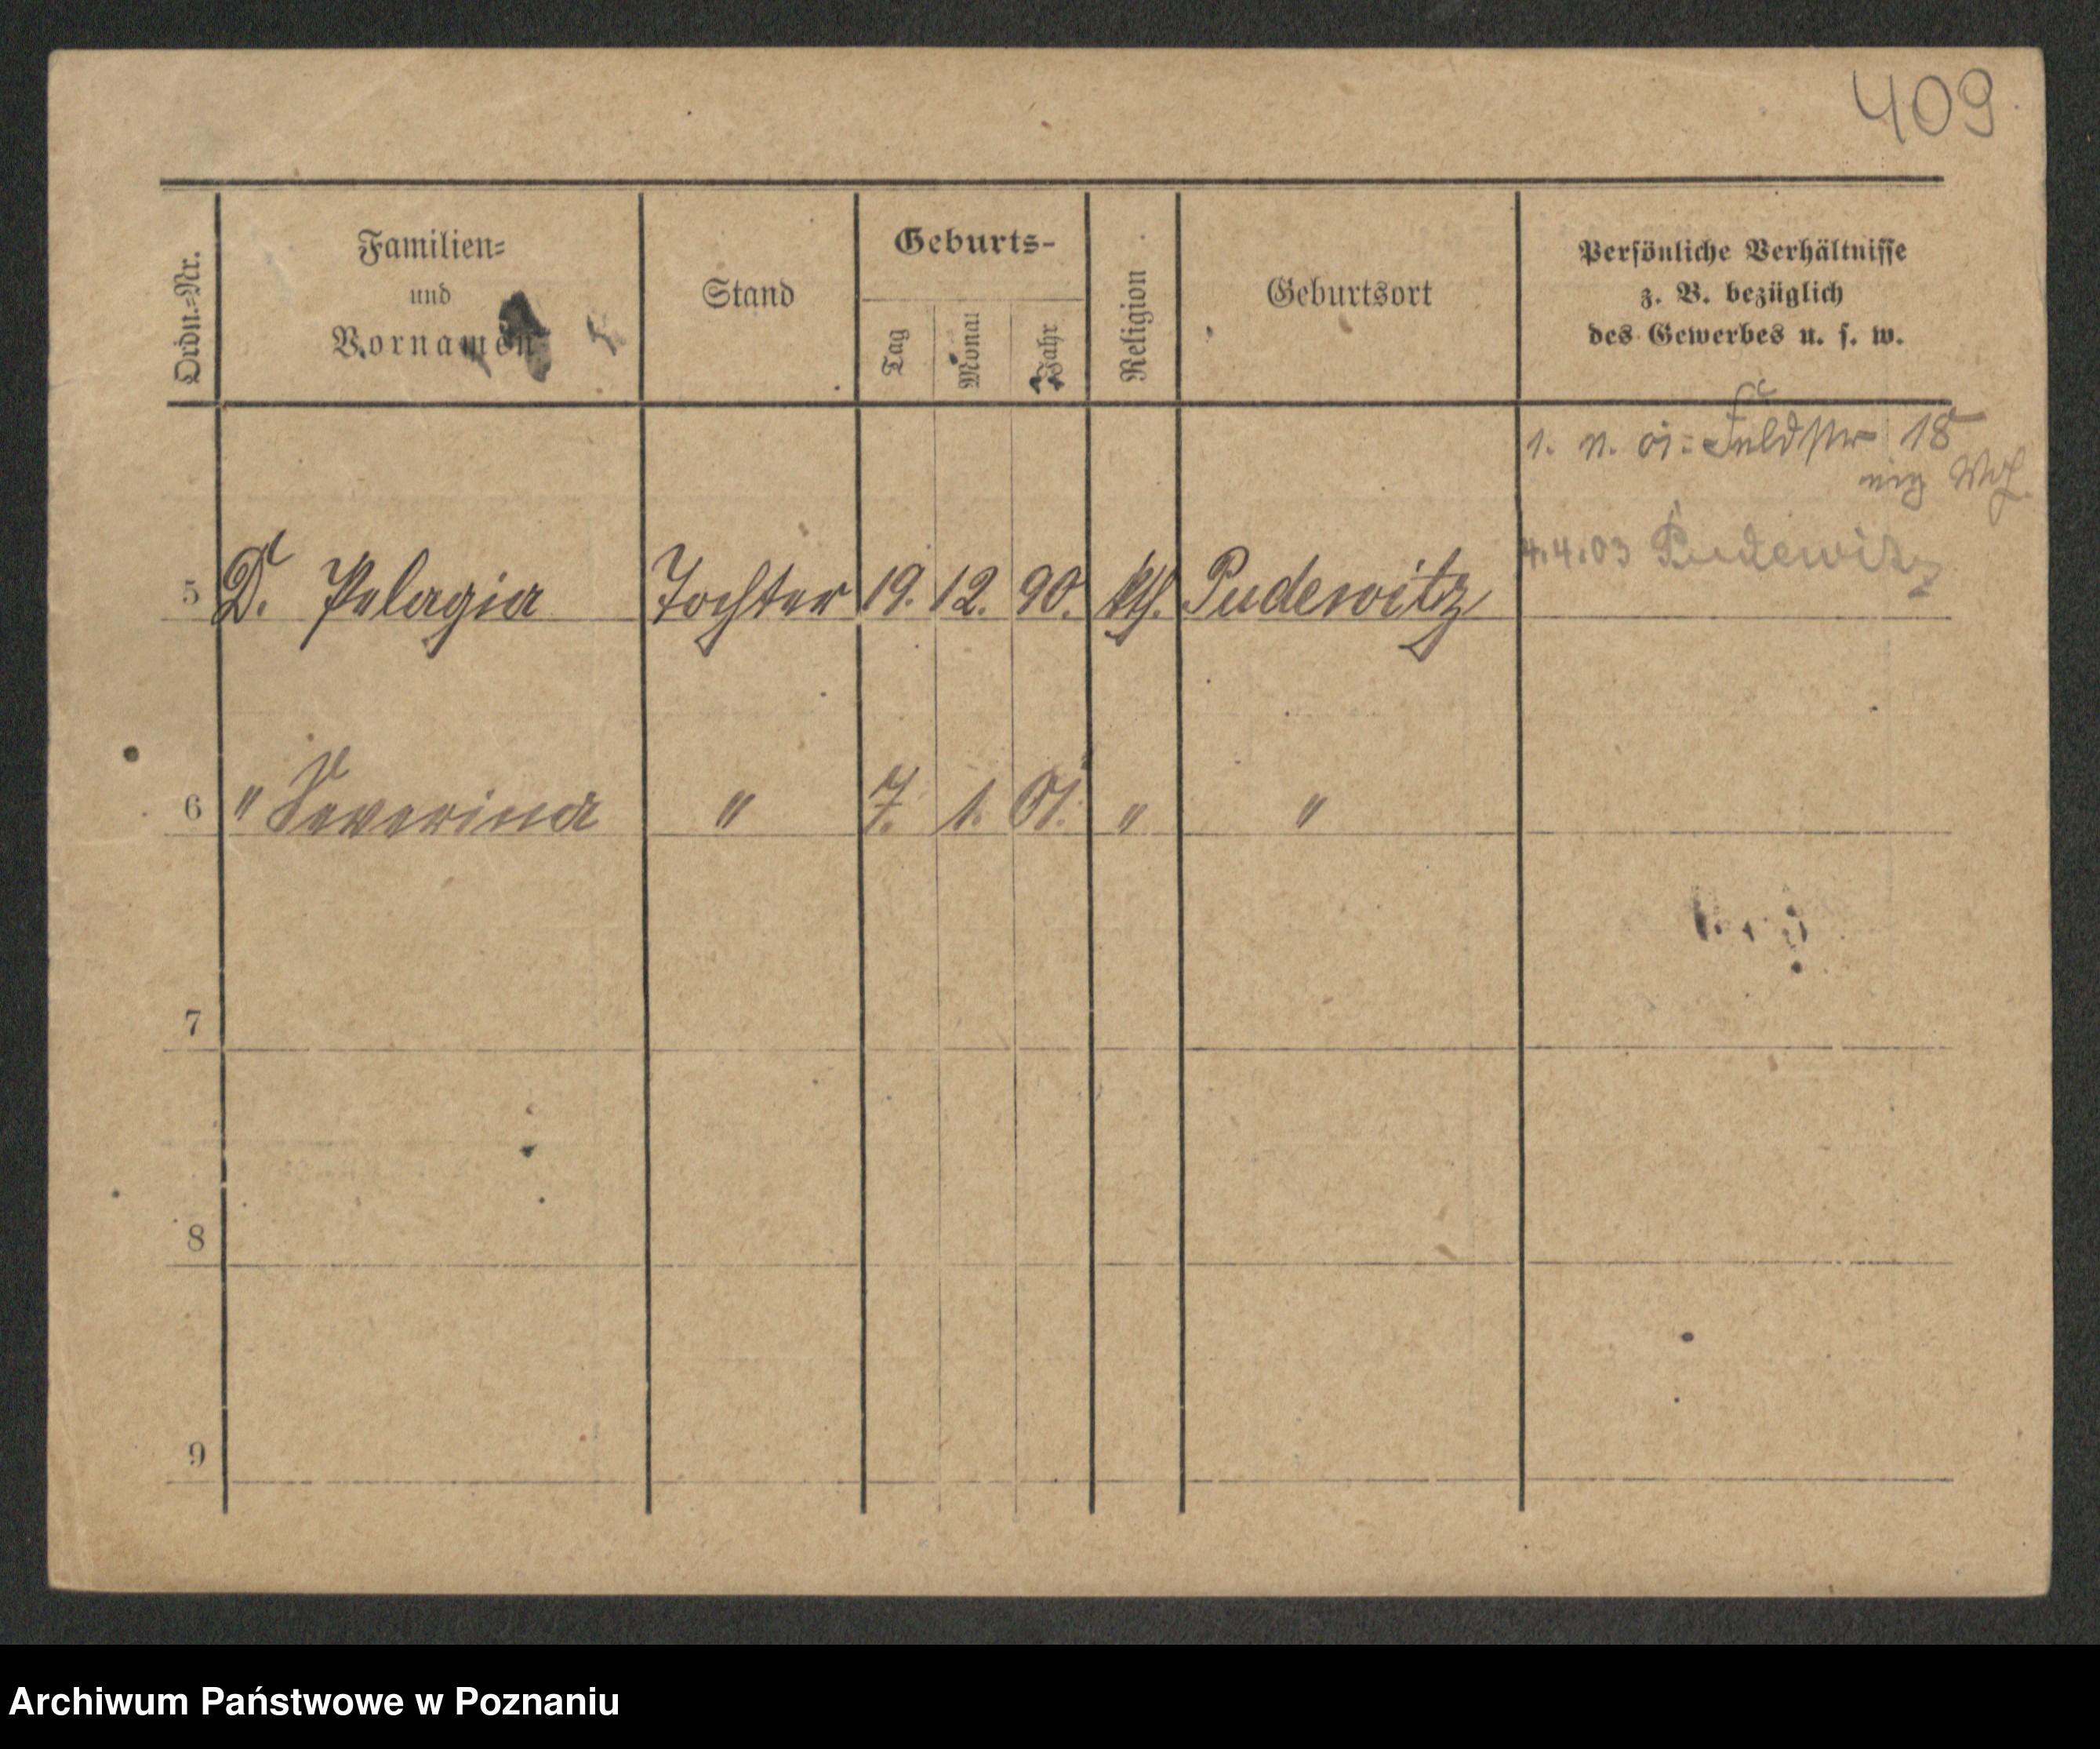 409
Ordn.=Nr.
Familien=
und
Vornamen
Stand
Geburts-
Tag
Monat
Jahr
Religion
Geburtsort
Persönliche Verhältnisse
z. B. bezüglich
des Gewerbes u. s. w.
1. 11. 01: Feldstr 18
4.4.03 Pudewitz
5 D. Pelagia Tochter 19. 12. 90. kth. Pudewitz
6 " Severina " 7. 1. 01. " "
7
8
9
Archiwum Państwowe w Poznaniu